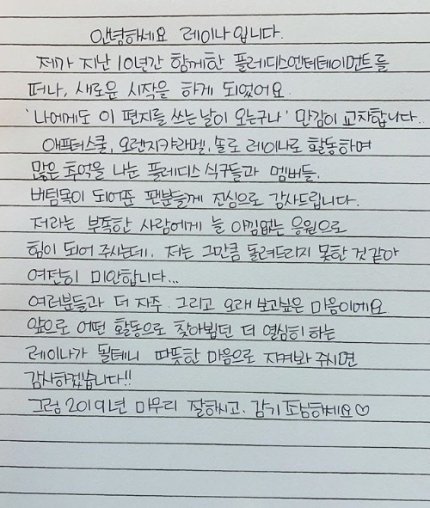 안녕하세요 레이나입니다.
제가 지난 10년간 함께한 플레디스엔터테이먼트를
떠나, 새로운 시작을 하게 되었어요.
'나에게도 이 편지를 쓰는날이 오는구나' 만감이 교차합니다..
애프터스쿨, 오렌지캬라멜, 솔로 레이나로 활동하며
많은 추억을 나눈 플레디스 식구들과 멤버들,
버팀목이 되어준 팬분들께 진심으로 감사드립니다.
저라는 부족한 사람에게 늘 아낌없는 응원으로
힘이 되어 주시는데, 저는 그만큼 돌려드리지 못한 것 같아
여전히 미안합니다...
여러분들과 더 자주, 그리고 오래 보고싶은 마음이에요
앞으로 어떤 활동으로 찾아뵙던 더 열심히 하는
레이나가 될테니 따뜻한 마음으로 지켜봐 주시면
감사하겠습니다!!
그럼 2019년 마무리 잘하시고, 감기 조심하세요♡